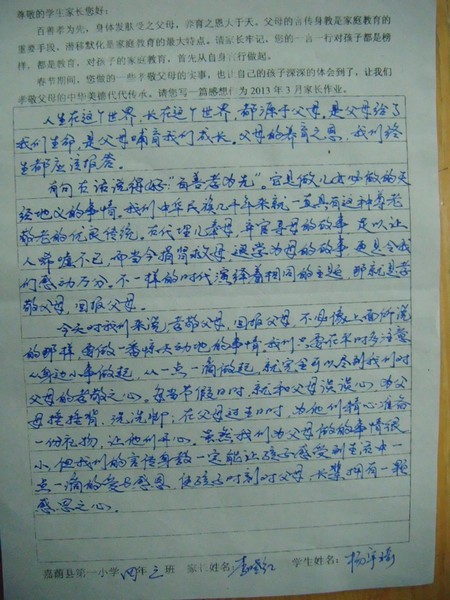 尊敬的学生家长您好：
百善孝为先，身体发肤受之父母，养育之恩大于天。父母的言传身教是家庭教育的
重要手段，潜移默化是家庭教育的最大特点。请家长牢记，您的一言一行对孩子都是榜
样。都是教育，对孩子的家庭教育，首先从自身言行做起。
春节期间，您做的一些孝敬父母的实事，也让自己的孩子深深的体会到了。让我们
孝敬父母的中华美德代代传承。请您写一篇感想作为 2013 年 3 月家长作业。
人生在这个世界，长在这个世界，都源于父母，是父母给了
我们生命，是父母哺育我们成长。父母的养育之恩，我们终
生都应该报答。
有句古语说得好："百善孝为先"。它是做儿女必做的天
经地义的事情。我们中华民族几千年来就一直具有这种尊老
敬老的优良传统。古代埋儿奉母，弃官寻母的故事足以让
人唏嘘不已，而当今捐肾救母，退学为母的故事更是令我
们感动万分。不一样的时代演绎着相同的主题，那就是孝
敬父母，回报父母。
今天对我们来说孝敬父母，回报父母，不必像上面所说
的那样，要做一番惊天动地的事情。我们只要在平时多注意
从身边小事做起，从一点一滴做起，就完全可以尽到我们对
父母的孝敬之心。每当节假日时，就和父母谈谈心，为父
母捶捶背，洗洗脚；在父母过生日时，为他们精心准备
一份礼物，让他们开心。虽然我们为父母做的事情很
小，但我们的言传身教一定能让孩子感受到生活中一
点一滴的爱与感恩，使孩子时刻对父母，长辈拥有一颗
感恩之心。
嘉荫县第一小学 四年三班 家长姓名： 学生姓名：杨宇